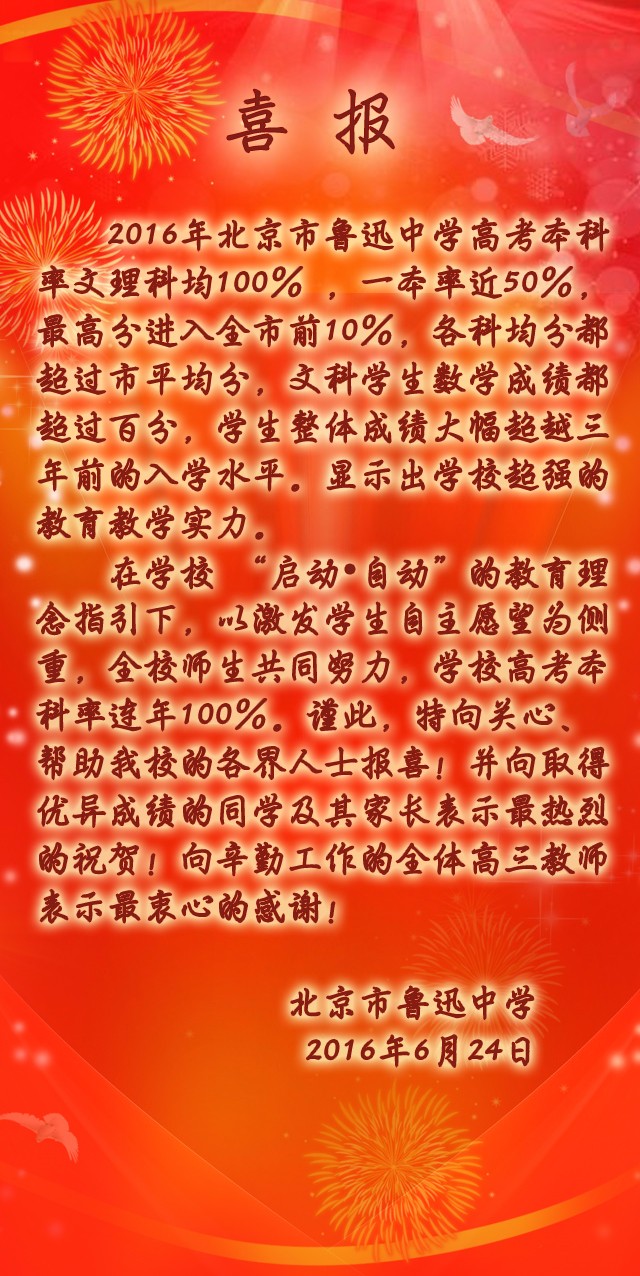 喜 报
2016年北京市鲁迅中学高考本科
率文理科均100%，一本率近50%，
最高分进入全市前10%，各科均分都
超过市平均分，文科学生数学成绩都
超过百分，学生整体成绩大幅超越三
年前的入学水平。显示出学校超强的
教育教学实力。
在学校 “启动•自动”的教育理
念指引下，以激发学生自主愿望为侧
重，全校师生共同努力，学校高考本
科率连年100%。谨此，特向关心、
帮助我校的各界人士报喜！并向取得
优异成绩的同学及其家长表示最热烈
的祝贺！向辛勤工作的全体高三教师
表示最衷心的感谢！
北京市鲁迅中学
2016年6月24日